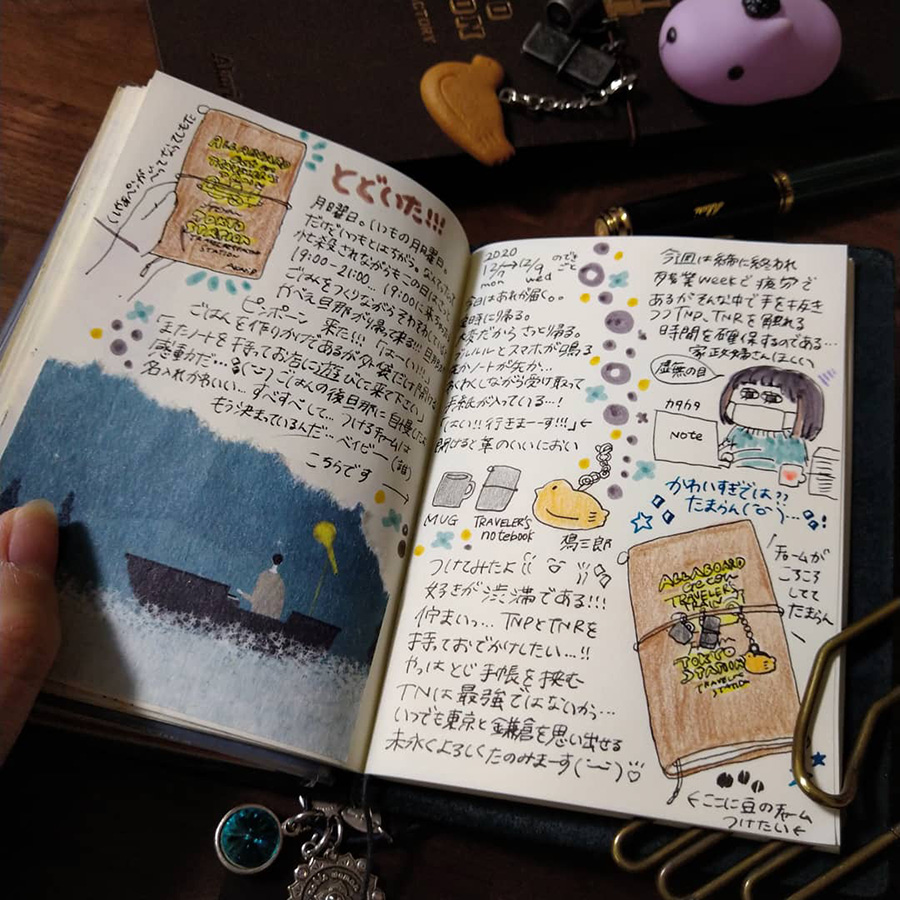 とどいた!!!
月曜日。いつもの月曜日。
だけどいつもとはちがう。なんてったって
忙殺されながらもこの日はさっさと
19:00-21:00… 19:00に来ちゃった
ごはんをつくりながらそわそわしている
がべえ旦那が帰って来る!!
ピンポーン 来た!!!「はーい!!!」
ごはんを作りかけであるが外袋だけ開ける
「またノートを持ってお店に遊びに来て下さい」
感動だ…
ごはんの後旦那に自慢した
名入れかわいい… すべすべして… つけるチャームは
もう決まっているんだ… ベイビー
こちらです
ALL ABOARD
TRAVELER'S
TRAIN
TOKYO
STATION
TRAVELER'S
STATION
2020
12/7→12/9
mon wed
のでき
ごと
今日はあれが届く。。
定時に帰る。
だからさっさと帰る。
プルルルとスマホが鳴る
わくわくしながら受け取って
手紙が入っている…!
「はい!! 行きまーす!!!」
開けると革のいいにおい
MUG
TRAVELER'S
notebook
鳩三郎
つけてみたよ
好きが渋滞である!!!
佇まいっ… TNPとTNRを
持っておでかけしたい…!!
やっはとじ手帳を挟む
TNは最強ではないかっ…
いつでも東京と鎌倉を思い出せる
末永くよろしくたのみまーす
今週は締に終われ
多忙業weekで疲労で
あるがそんな中で手を抜き
つつTNP、TNRを触れる
時間を確保するのである…
家政婦さんほしい
虚無の目
カタカタ
NOTE
かわいすぎでは??
たまらん
「チャームが
ころころ
してて
たまらん
ALL ABOARD
TRAVELER'S
TRAIN
TOKYO
STATION
TRAVELER'S
STATION
ここに豆のチャーム
つけたい